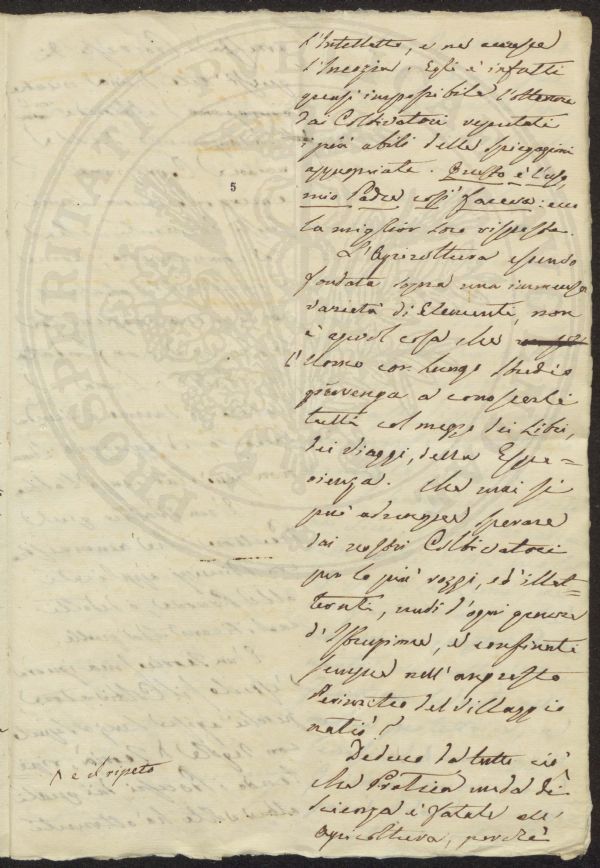 5
l'Intelletto, e ne accresce
l'Inerzia. Egli è infatti
quasi impossibile l'ottenere
dai Coltivatori reputati
i più abili delle spiegazioni
appropriate. Questo è l'uso,
mio Padre così faceva: ecco
la miglior loro risposta.
L'Agricoltura essendo
fondata sopra una immensa
varietà di Elementi, non
è agevol cosa che
l'Uomo con lungo studio
pervenga a conoscerli
tutti col mezzo dei Libri,
dei Viaggi, della Espe=
rienza. Che mai si
può adunque sperare
dai nostri Coltivatori
per lo più rozzi, ed illet=
terati, nudi d'ogni genere
d'Istruzione, e confinati
sempre nell'angusto
Perimetro del Villaggio
natio?
Deduco da tutto ciò
e il ripeto
che Pratica nuda di
Scienza è fatale all'
Agricoltura, perchè